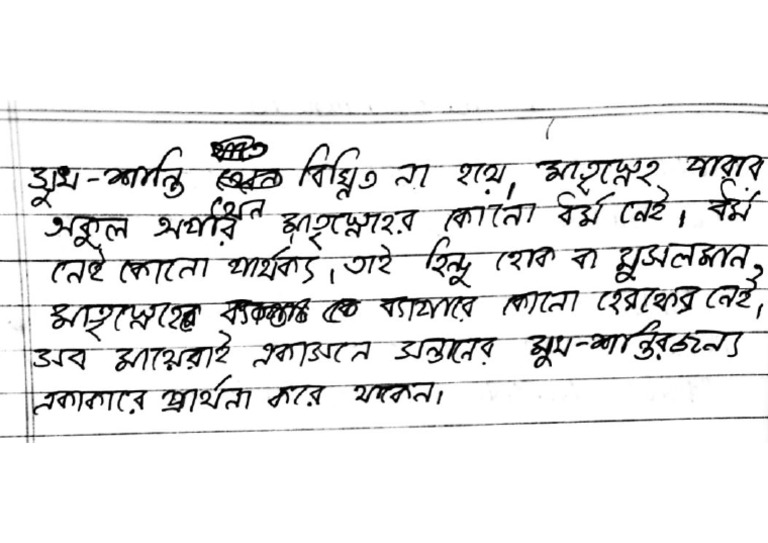 সুখ-শান্তি যেন বিঘ্নিত না হয়, মাতৃস্নেহ পারাবার
অকুল অপার। মাতৃস্নেহের কোনো ধর্ম নেই। ধর্ম
নেই কোনো পার্থক্য, তাই হিন্দু হোক বা মুসলমান,
মাতৃস্নেহের ব্যাপারে কোনো হেরফের নেই,
সব মায়েরাই একাসনে সন্তানের সুখ-শান্তির জন্য
একাকারে প্রার্থনা করে থাকেন।